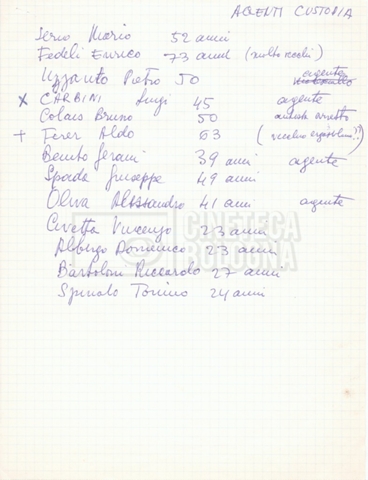 AGENTI CUSTODIA
Serio Mario 52 anni
Fedeli Enrico 73 anni (molto vecchi)
Uzzanto Pietro 50 agente
x CARBINI Luigi 45 agente
Colais Bruno 50 autista arresto
+ Ferer Aldo 63 (vecchio ergastolano??)
Benito Gerani 39 anni agente
Spada Giuseppe 49 anni
Oliva Alessandro 41 anni agente
Civetta Vincenzo 23 anni
Albergo Domenico 23 anni
Bartoloni Riccardo 27 anni
Spinalo Tonino 24 anni
CINETECA
BOLOGNA